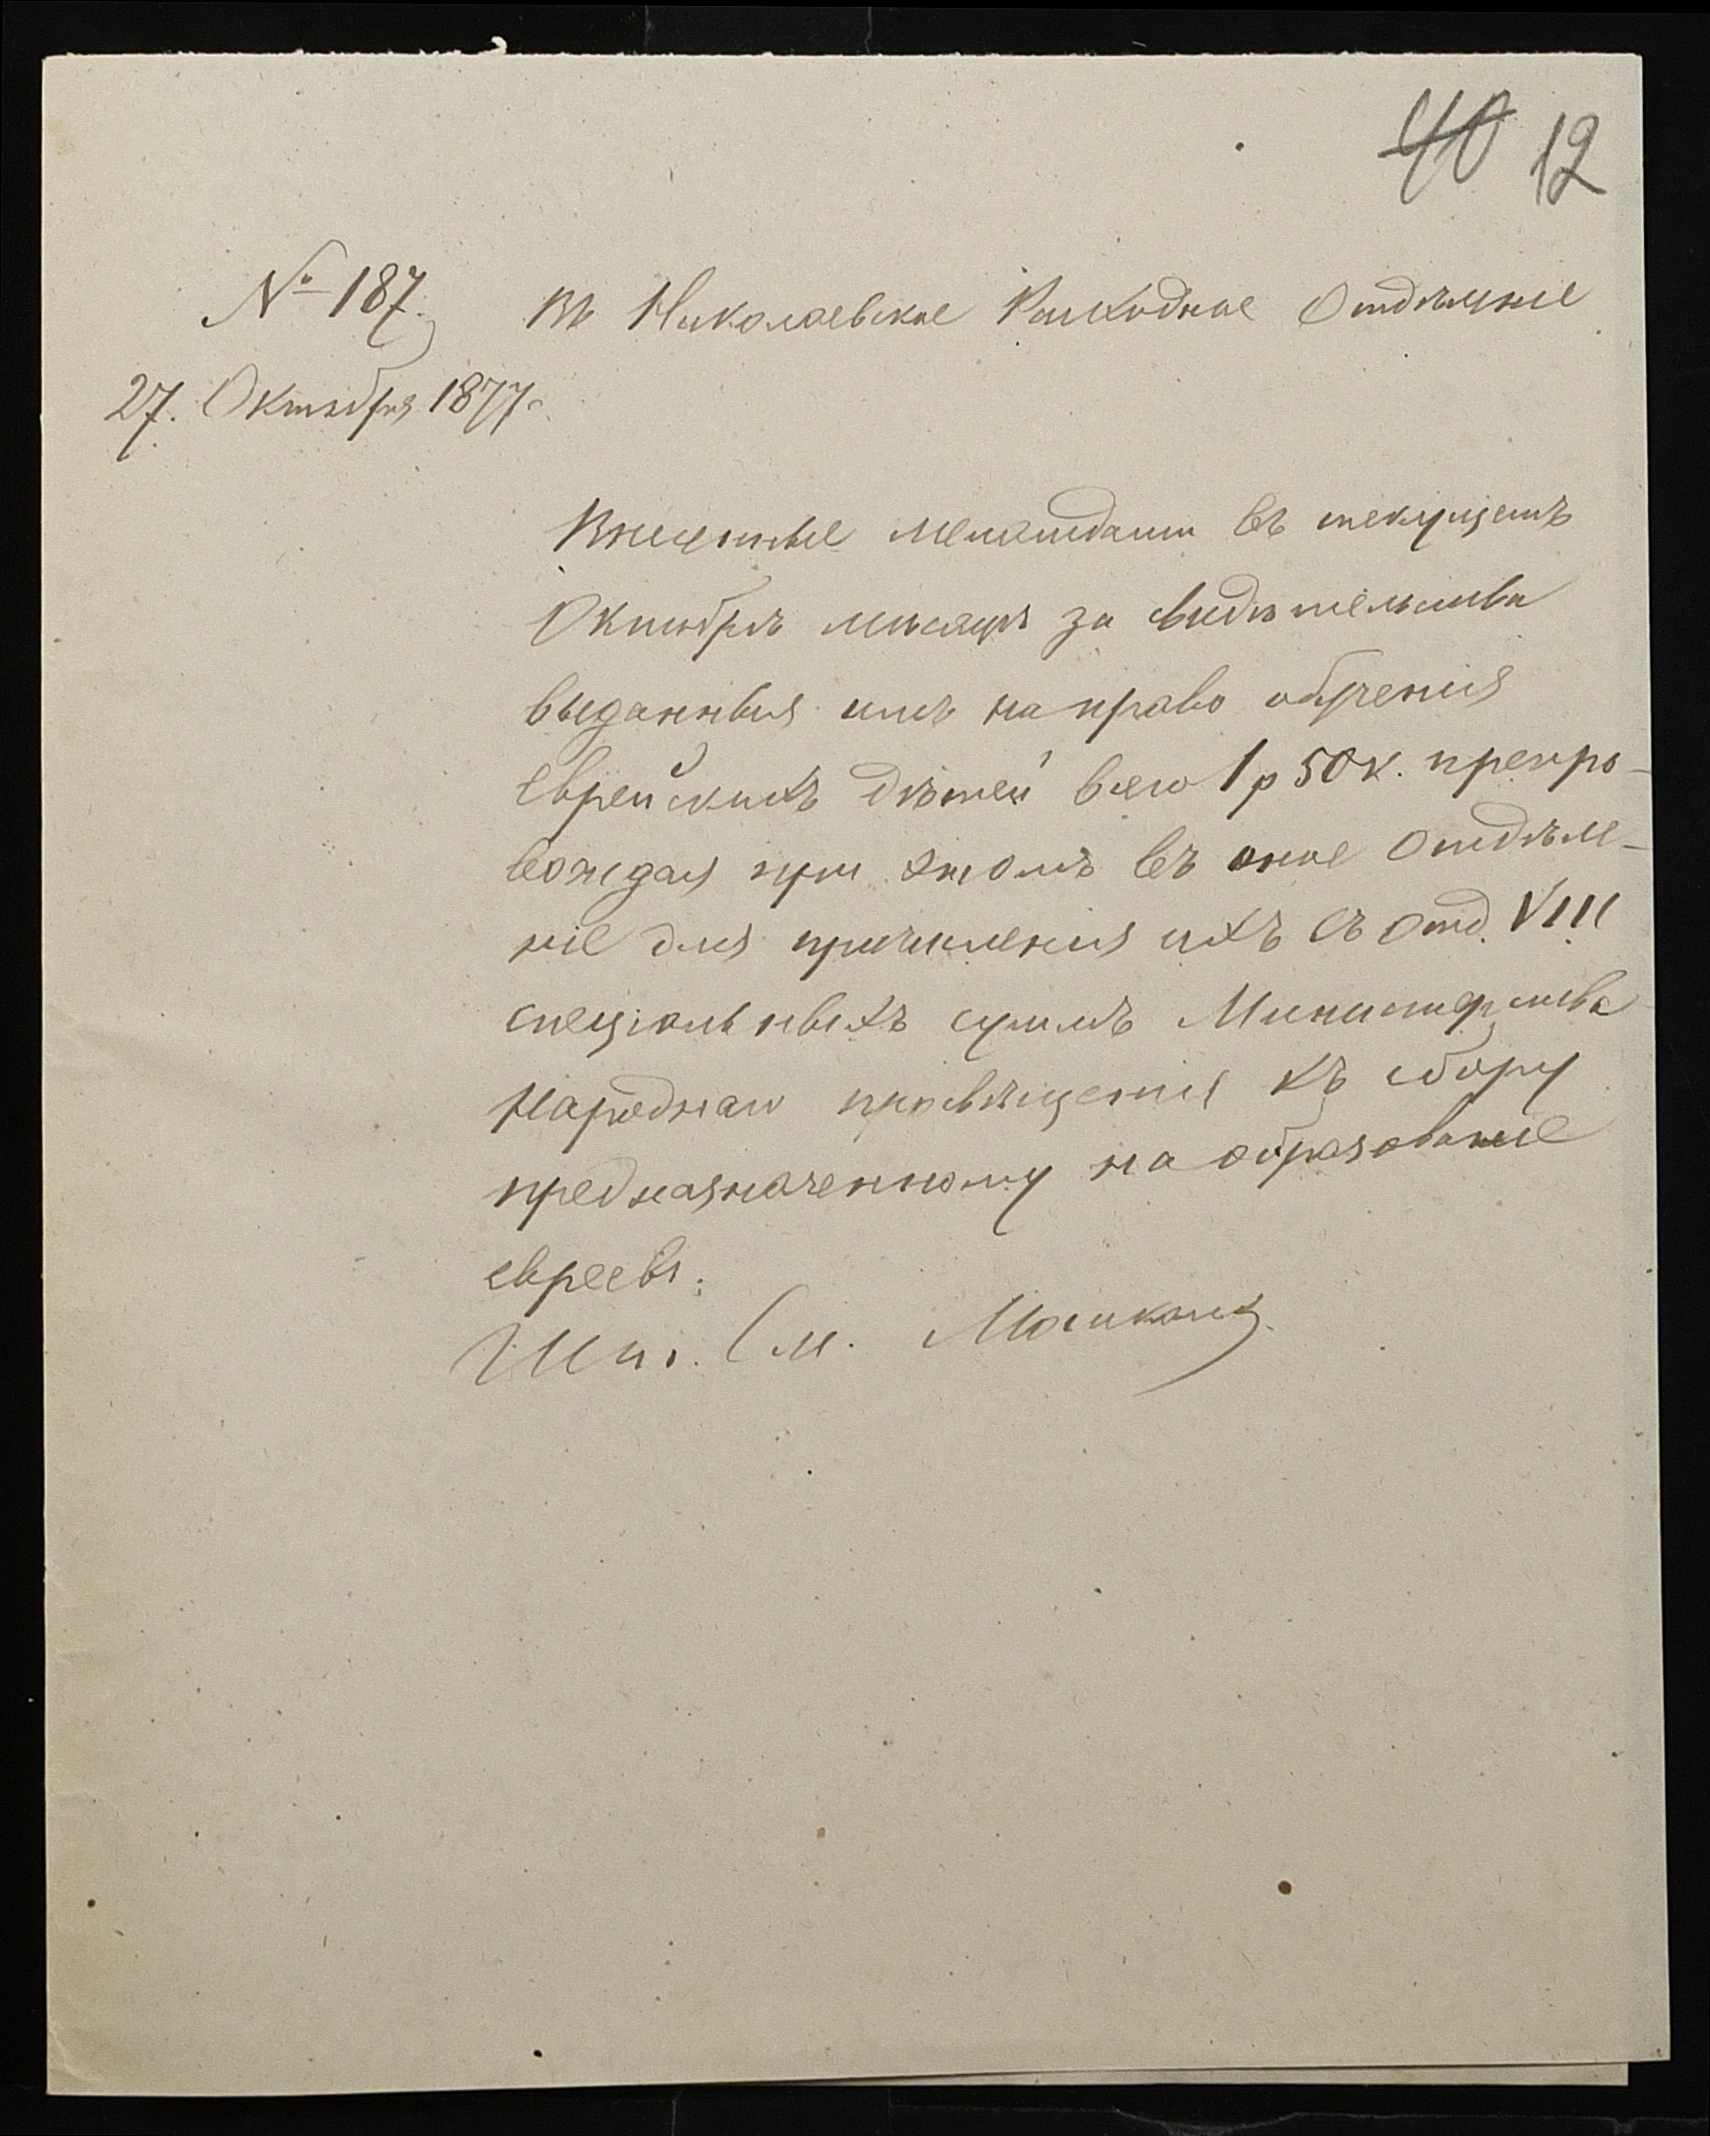 40 12
№ 187.
Въ Николаевское Расходное Отдѣленіе
27. Октября 1877 г.
Внесенные меламдами въ текущемъ
Октябрѣ мѣсяцѣ за свидѣтельства
выданныя имъ на право обученія
еврейскихъ дѣтей всего 1 р 50 к. препро-
вождая при этомъ въ оное Отдѣле-
ніе для причисленія ихъ съ отд. VIII
спеціальныхъ суммъ Министерства
Народнаго просвѣщенія къ сбору
предназначенному на образованіе
евреевъ.
См.